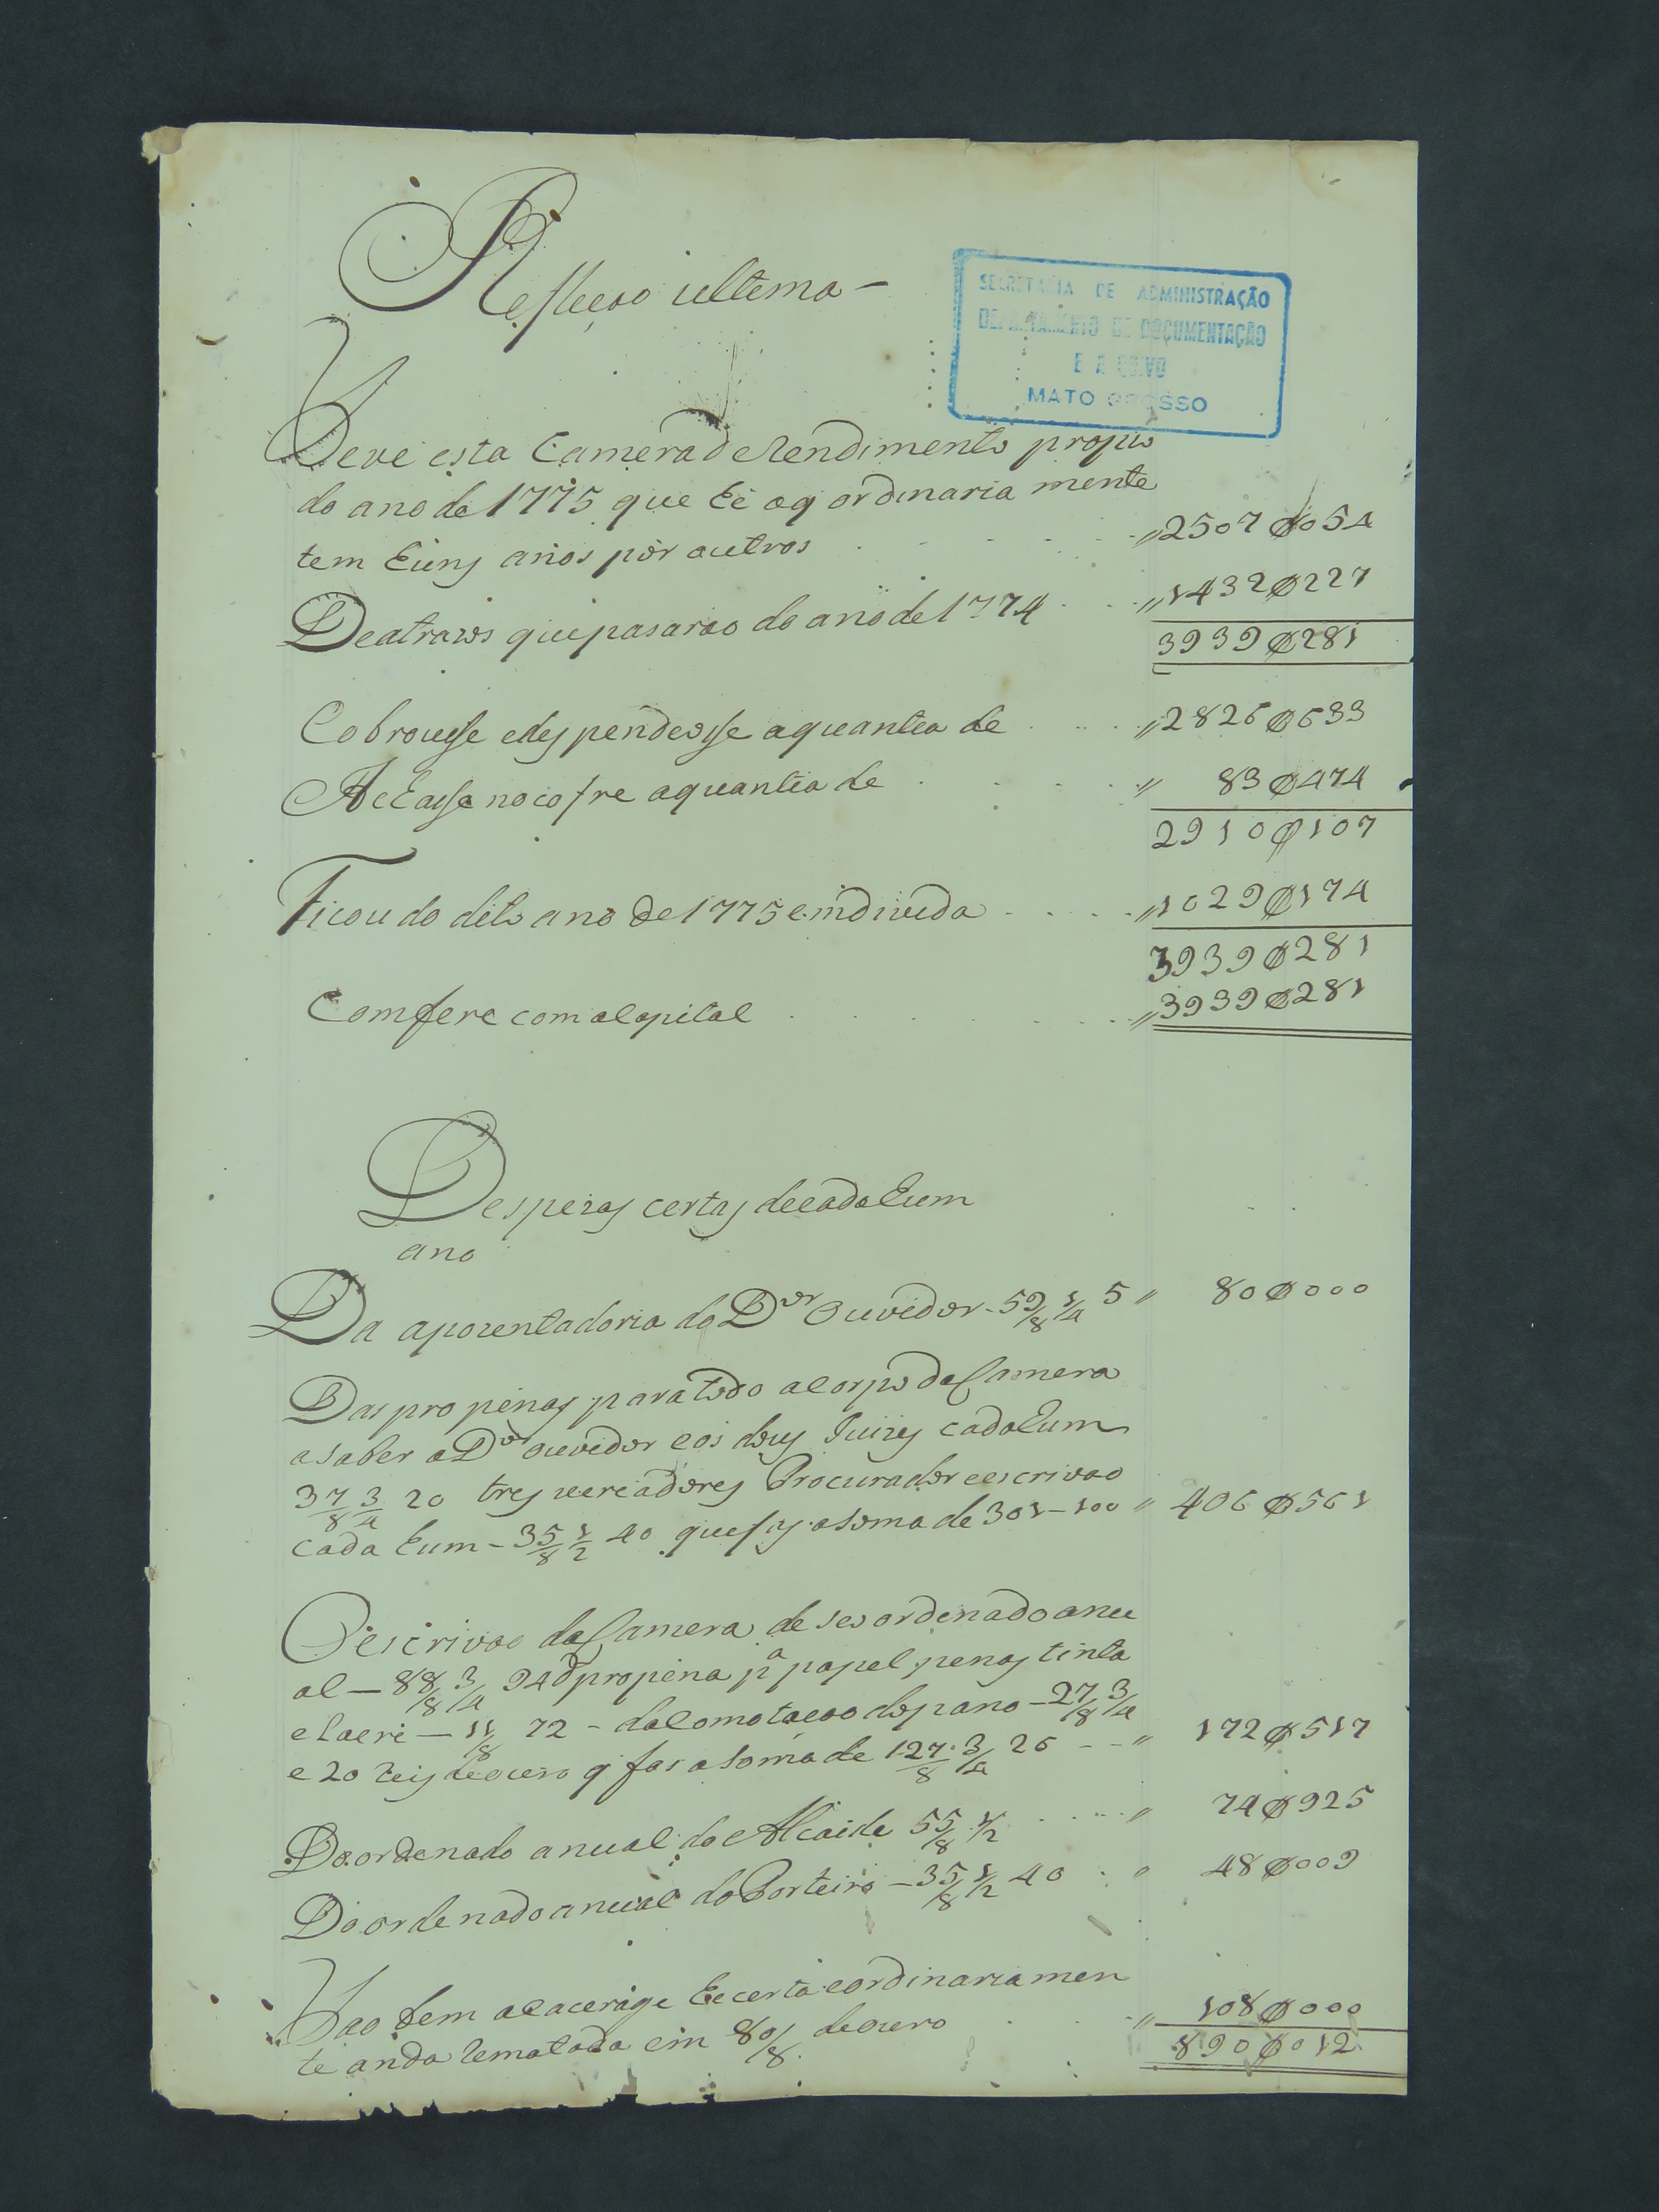 Reflecao ultema -
SECRETARIA DE ADMINISTRAÇÃO
DEPARTAMENTO DE DOCUMENTAÇÃO
E ARQUIVO
MATO GROSSO
Deve esta Camera de Rendimento propio
do ano de 1775 que he oq ordinaria mente
tem huns anos por outros " 2507$054
De atrazos que pasarao do ano de 1774 " 1432$227
3939$281
Cobrouse e despendeose a quantia de " 2826$633
Achase no cofre a quantia de " 83$474
2910$107
Ficou do dito ano de 1775 em divida " 1029$174
3939$281
Comfere com a capital " 3939$281
Despezas certas de cada hum
ano
Da apozentadoria do Dor Ouvidor - 59/8 1/4 5 " 80$000
Das propinas para todo a corpo da Camera
a saber o Dor ouvidor e os dous Juizes cada hum
37/8 3/4 20 tres vereadores Procurador e escrivao
cada hum - 35/8 1/2 40 que fas a soma de 301-100 " 406$561
O escrivao da Camera de seo ordenado anu
al - 88/8 3/4 94 propina pa papel penas tinta
e lacre - 11/8 72 - da comotacao dos pano - 27/8 3/4
e 20 reis de ouro q fas a soma de 127/8 3/4 26 - - " 172$517
Do ordenado anual do Alcaide 55/8 1/2 " 74$925
Do ordenado anual do Porteiro - 35/8 1/2 40 " 48$009
Hao dem a carcerage he certa e ordinaria men
te anda rematada em 80/8 de ouro " 108$000
890$012